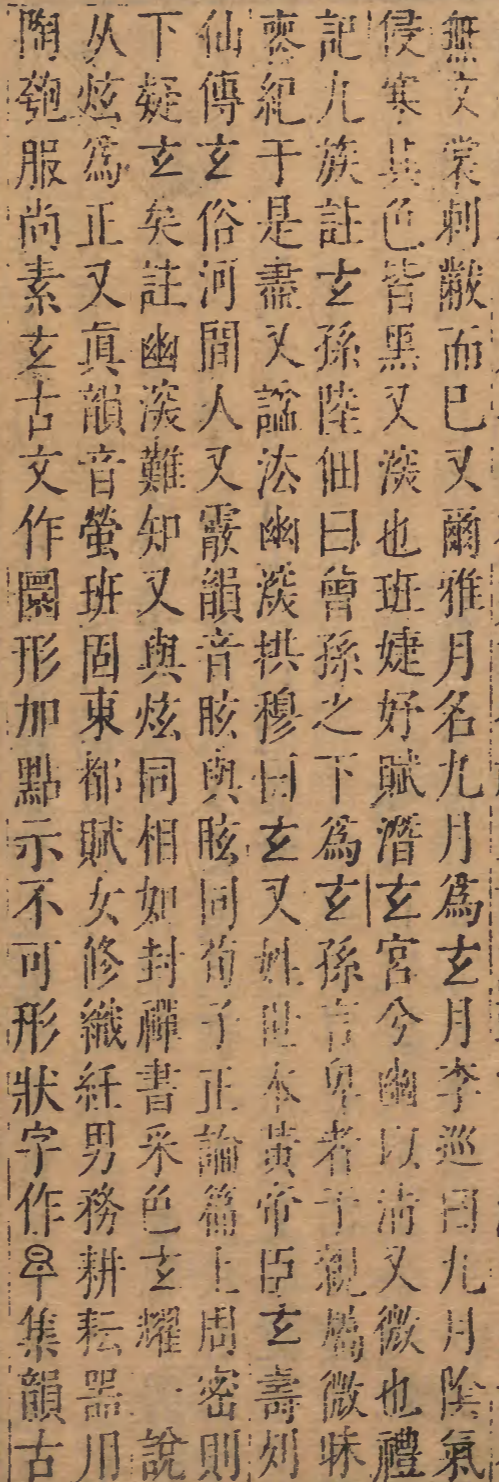 無文裳刺黻而巳又爾雅月名九月爲玄月李巡曰九月陰氣
侵寒其色皆黑又深也班婕妤賦潛玄宮兮幽以淸又微也禮
記九族註玄孫陸佃曰曾孫之下爲玄孫言卑者于親屬微昧
喪紀于是盡又諡法幽深拱穆曰玄又姓世本黃帝臣玄壽列
仙傳玄俗河間人又霰韻音眩與眩同荀子正論篇上周密則
下疑玄矣註幽深難知又與炫同相如封禪書采色玄耀一說
从炫爲正又真韻音螢班固東都賦女修織紝男務耕耘器用
陶匏服尚素玄古文作圜形加點示不可形狀字作𤣥集韻古